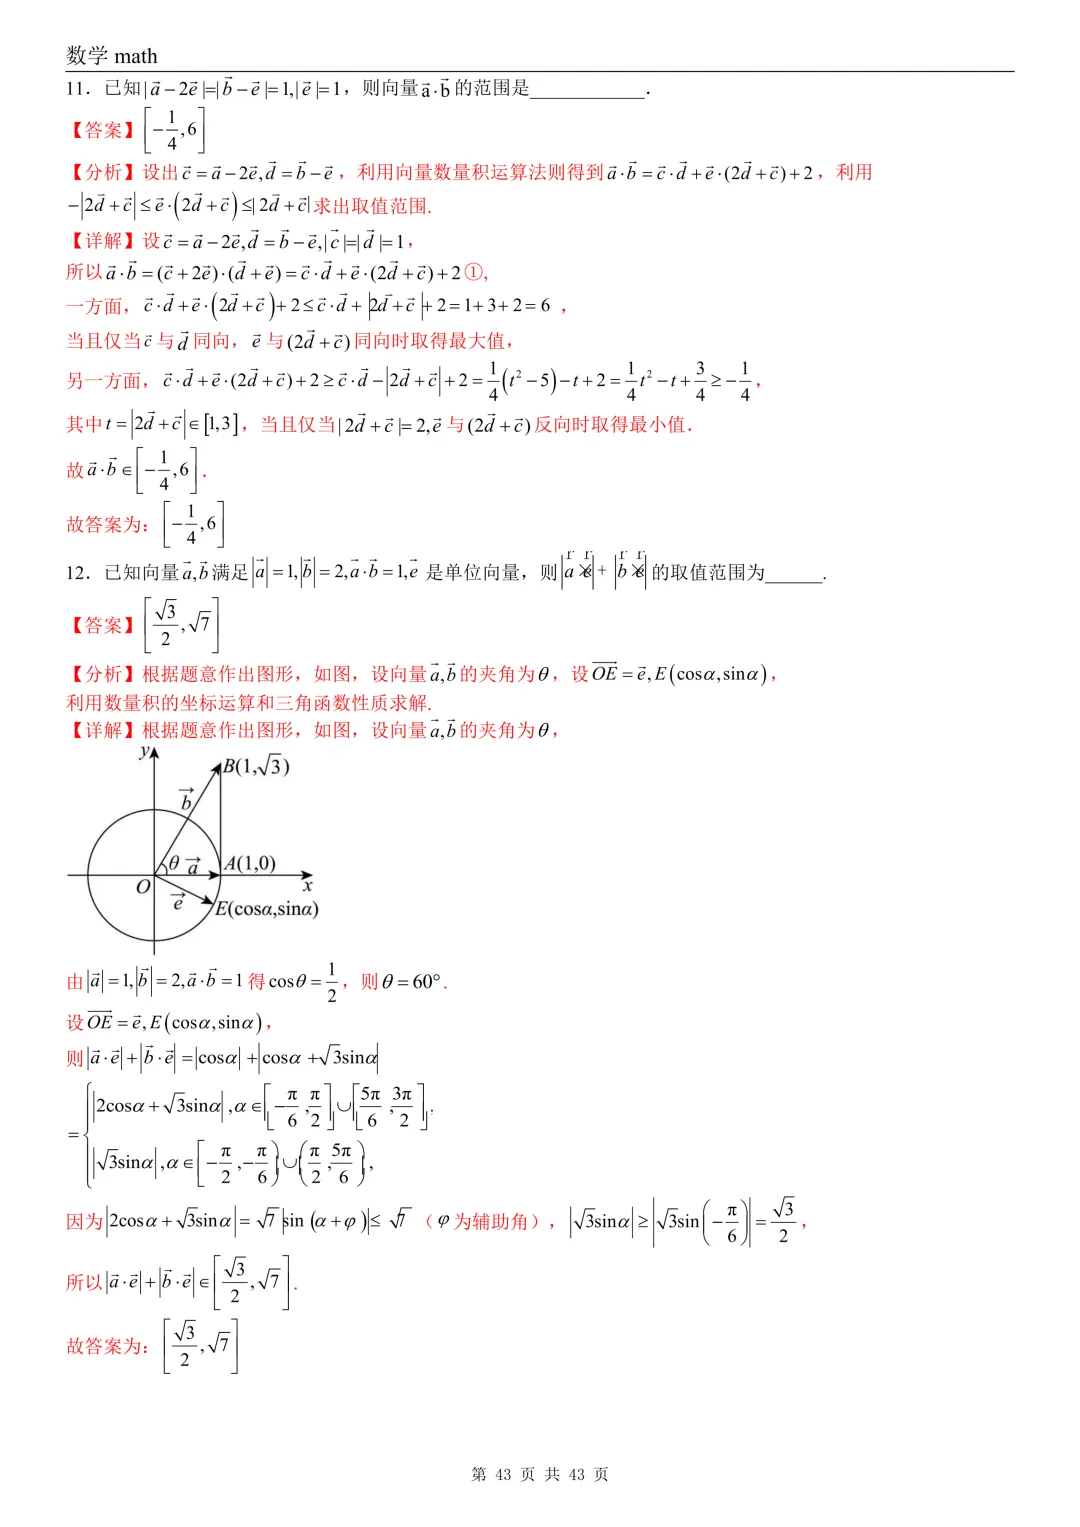 数学 math
11．已知|a⃗−2e⃗|=|b⃗−e⃗|=1,|e⃗|=1，则向量a⃗·b⃗的范围是____________．
【答案】[−1/4,6]
【分析】设出c⃗=a⃗−2e⃗,d⃗=b⃗−e⃗，利用向量数量积运算法则得到a⃗·b⃗=c⃗·d⃗+e⃗·(2d⃗+c⃗)+2，利用
−|2d⃗+c⃗|≤e⃗·(2d⃗+c⃗)≤|2d⃗+c⃗|求出取值范围.
【详解】设c⃗=a⃗−2e⃗,d⃗=b⃗−e⃗,|c⃗|=|d⃗|=1，
所以a⃗·b⃗=(c⃗+2e⃗)·(d⃗+e⃗)=c⃗·d⃗+e⃗·(2d⃗+c⃗)+2①,
一方面，c⃗·d⃗+e⃗·(2d⃗+c⃗)+2≤c⃗·d⃗+|2d⃗+c⃗|+2=1+3+2=6，
当且仅当c⃗与d⃗同向，e⃗与(2d⃗+c⃗)同向时取得最大值，
另一方面，c⃗·d⃗+e⃗·(2d⃗+c⃗)+2≥c⃗·d⃗−|2d⃗+c⃗|+2=1/4(t²−5)−t+2=1/4t²−t+3/4≥−1/4，
其中t=|2d⃗+c⃗|∈[1,3]，当且仅当|2d⃗+c⃗|=2,e⃗与(2d⃗+c⃗)反向时取得最小值．
故a⃗·b⃗∈[−1/4,6]．
故答案为：[−1/4,6]
12．已知向量a⃗,b⃗满足|a⃗|=1,|b⃗|=2,a⃗·b⃗=1,e⃗是单位向量，则|a×e|+|b×e|的取值范围为______.
【答案】[√3/2,√7]
【分析】根据题意作出图形，如图，设向量a⃗,b⃗的夹角为θ，设OE⃗=e⃗,E(cosα,sinα)，
利用数量积的坐标运算和三角函数性质求解.
【详解】根据题意作出图形，如图，设向量a⃗,b⃗的夹角为θ，
y
B(1,√3)
b⃗
θ
a⃗
A(1,0)
O
x
e⃗
E(cosα,sinα)
由|a⃗|=1,|b⃗|=2,a⃗·b⃗=1得cosθ=1/2，则θ=60°.
设OE⃗=e⃗,E(cosα,sinα)，
则|a⃗·e⃗|+|b⃗·e⃗|=|cosα|+|cosα+√3sinα|
={|2cosα+√3sinα|,α∈[−π/6,π/2]∪[5π/6,3π/2],
|√3sinα|,α∈[−π/2,−π/6)∪(π/2,5π/6),
因为|2cosα+√3sinα|=√7|sin(α+φ)|≤√7（φ为辅助角），|√3sinα|≥|√3sin(−π/6)|=√3/2，
所以|a⃗·e⃗|+|b⃗·e⃗|∈[√3/2,√7].
故答案为：[√3/2,√7]
第 43 页 共 43 页